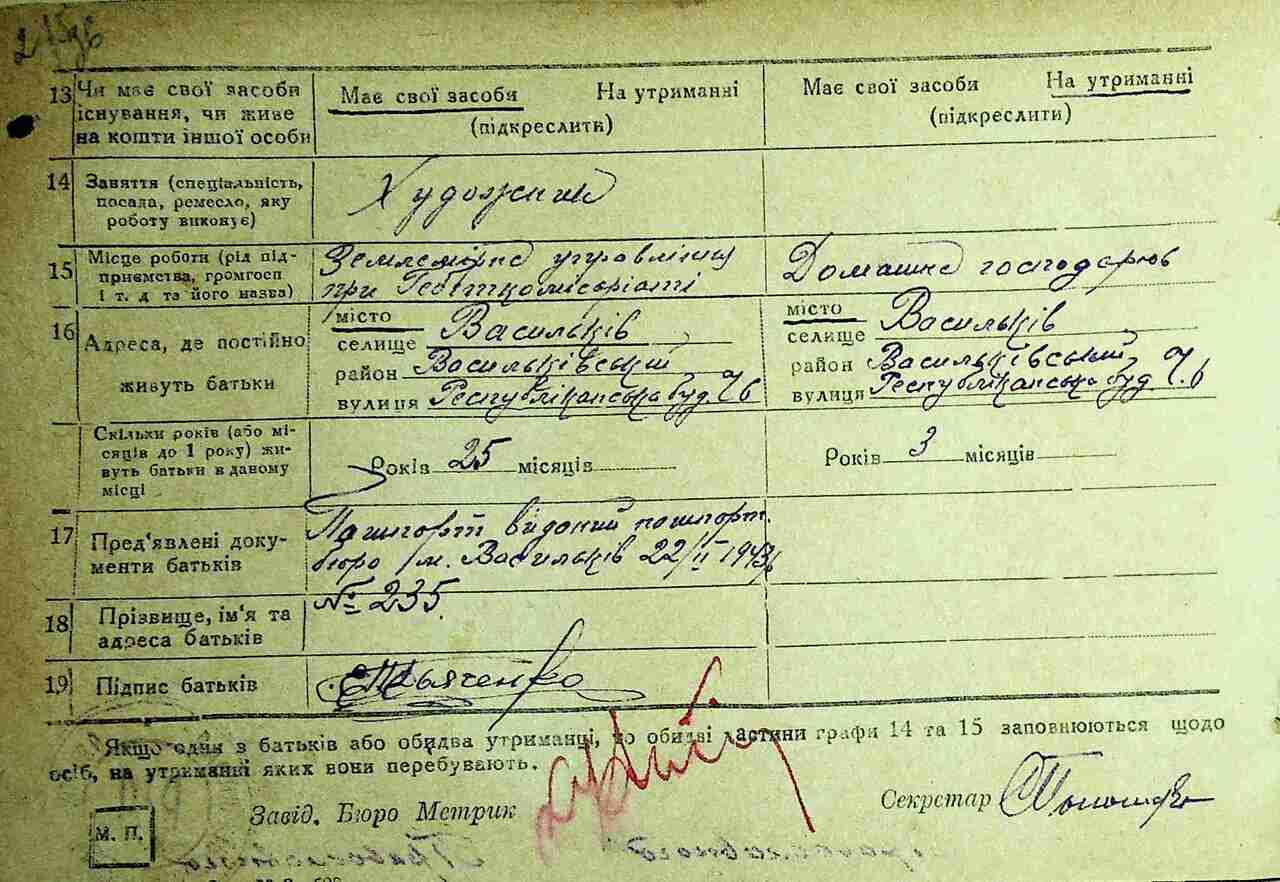 13 Чи має свої засоби існування, чи живе на кошти іншої особи
Має свої засоби На утриманні
(підкреслити)
Має свої засоби На утриманні
(підкреслити)
14 Заняття (спеціальність, посада, ремесло, яку роботу виконує)
Художник
15 Місце роботи (рід підприємства, громгосп і т. д та його назва)
Землемірне управління
при Гебіткомісаріаті
Домашнє господарюв
16 Адреса, де постійно живуть батьки
місто Васильків
селище
район Васильківський
вулиця Республіканська буд Ч 6
місто Васильків
селище
район Васильківський
вулиця Республіканська буд. Ч. 6
Скільки років (або місяців до 1 року) живуть батьки в даному місці
Років 25 місяців
Років 3 місяців
17 Пред'явлені документи батьків
Пашпорт виданий пашпорт.
бюро м. Васильків 22/II 1943
№ 235.
18 Прізвище, ім'я та адреса батьків
19 Підпис батьків
Якщо один з батьків або обидва утриманці, то обидві частини графи 14 та 15 заповнюються щодо
осіб, на утриманні яких вони перебувають.
Завід. Бюро Метрик
Секретар
М. П.